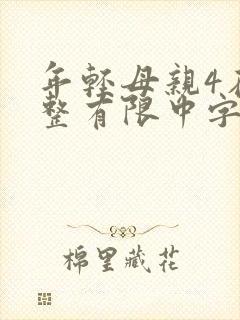 年轻母親4在
整有限中字
棉里藏花